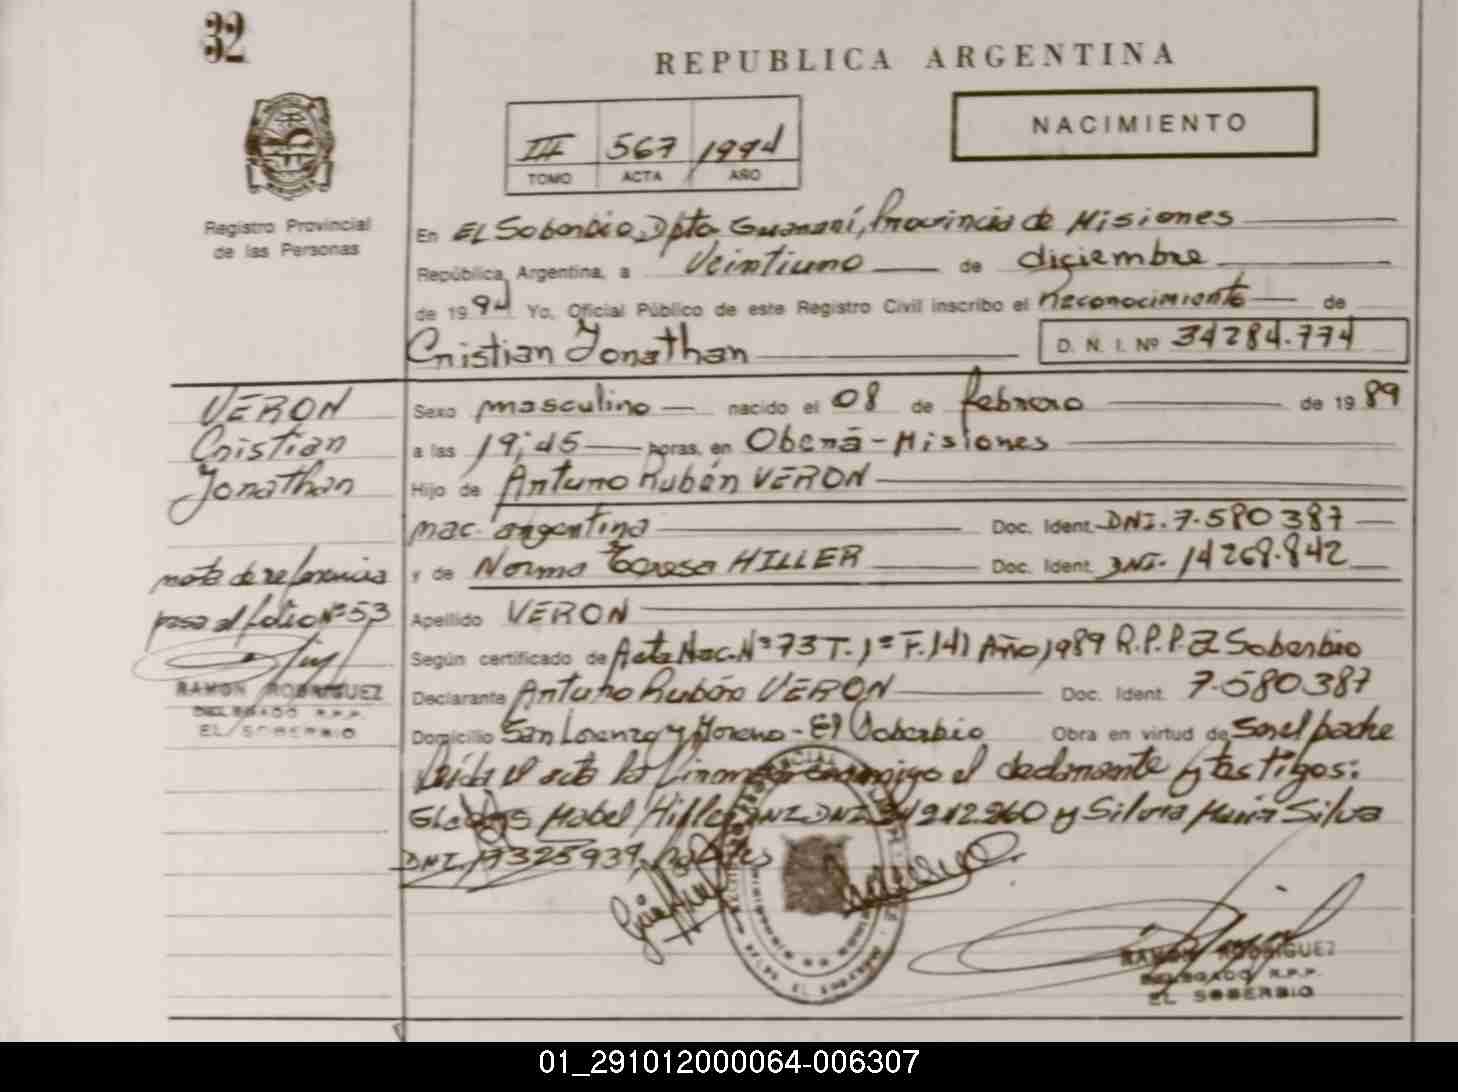 32
REPUBLICA ARGENTINA
NACIMIENTO
III 567 1994
TOMO ACTA AÑO
Registro Provincial
de las Personas
En El Soberbio, Dpto Guaraní, Provincia de Misiones
República Argentina, a Veintiuno de diciembre
de 1994 Yo, Oficial Público de este Registro Civil inscribo el Reconocimiento de
Cristian Jonathan D. N. I. Nº 34284.774
VERON
Cristian
Jonathan
Sexo masculino nacido el 08 de febrero de 1989
a las 19;45 horas, en Oberá - Misiones
Hijo de Arturo Rubén VERON
nac. argentina Doc. Ident. DNI. 7.580387
y de Norma Teresa HILLER Doc. Ident. DNI. 14268.842
nota de referencia
pasa al folio Nº 53
RAMON RODRIGUEZ
DELEGADO R.P.P.
EL SOBERBIO
Apellido VERON
Según certificado de Acta Nac. Nº 73 T. 1º F. 141 Año 1989 R.P.P. El Soberbio
Declarante Arturo Rubén VERON Doc. Ident. 7.580387
Domicilio San Lorenzo y Moreno - El Soberbio Obra en virtud de Ser el padre
Leída el acta la firman conmigo el declarante y testigos:
Gladys Mabel Hiller DNI 212260 y Silvia María Silva
DNI 17325939
RAMON RODRIGUEZ
DELEGADO R.P.P.
EL SOBERBIO
01_291012000064-006307